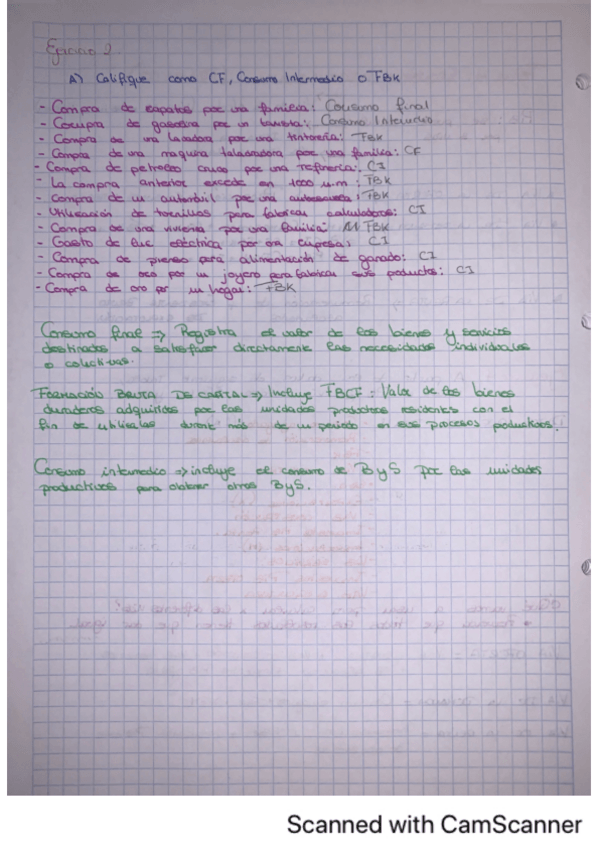 Ejercicio 2.
A) Califique como CF, Consumo Intermedio o FBK
- Compra de zapatos por una familia: Consumo final
- Compra de gasolina por un taxista: Consumo Intermedio
- Compra de una lavadora por una tintorería: FBK
- Compra de una maquina taladradora por una familia: CF
- Compra de petroleo crudo por una refinería: CI
- La compra anterior excede en 1000 u.m: FBK
- Compra de un automóvil por una autoescuela: FBK
- Utilización de tornillos para fabricar calculadoras: CI
- Compra de una vivienda por una familia: FBK
- Gasto de luz eléctrica por una empresa: CI
- Compra de pienso para alimentación de ganado: CI
- Compra de oro por un joyero para fabricar sus productos: CI
- Compra de oro por un hogar: FBK
Consumo final => Registra el valor de los bienes y servicios
destinados a satisfacer directamente las necesidades individuales
o colectivas.
FORMACIÓN BRUTA DE CAPITAL => Incluye FBCF: Valor de los bienes
duraderos adquiridos por las unidades productoras residentes con el
fin de utilizarlas durante más de un periodo en sus procesos productivos.
Consumo intermedio => incluye el consumo de B y S por las unidades
productivas para obtener otros B y S.
Scanned with CamScanner